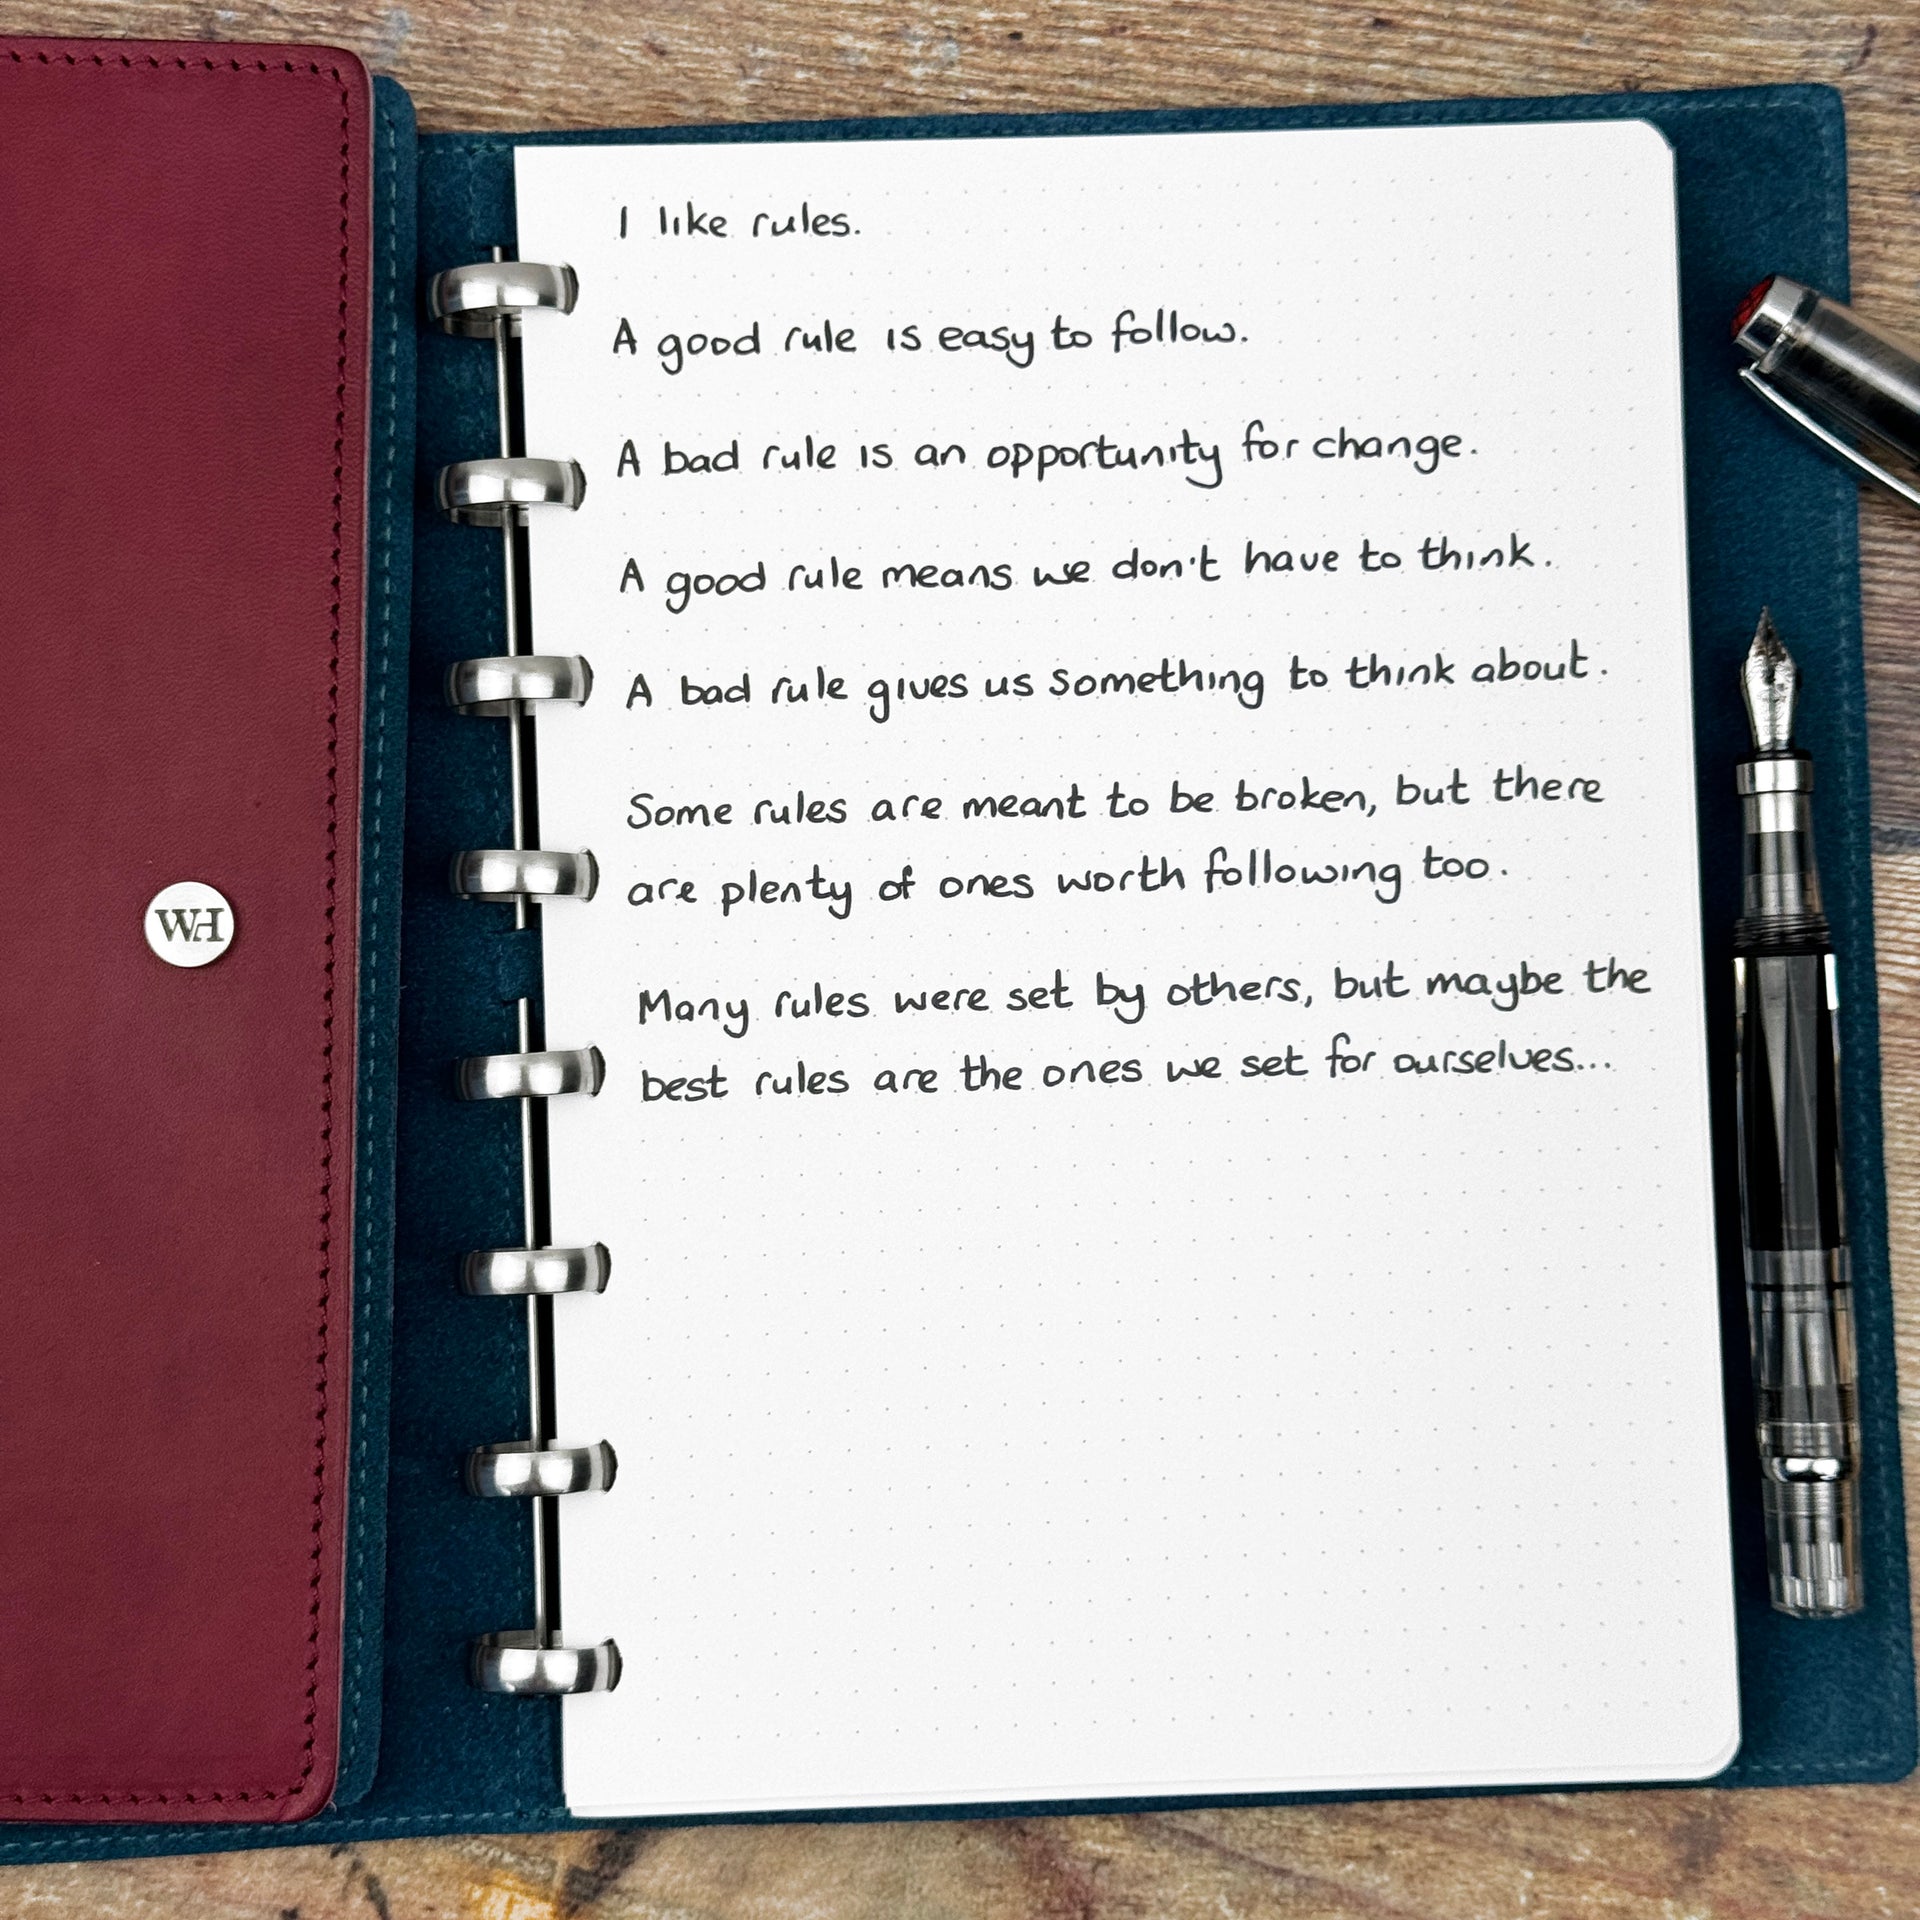 I like rules.
A good rule is easy to follow.
A bad rule is an opportunity for change.
A good rule means we don't have to think.
A bad rule gives us something to think about.
Some rules are meant to be broken, but there
are plenty of ones worth following too.
Many rules were set by others, but maybe the
best rules are the ones we set for ourselves...
WH